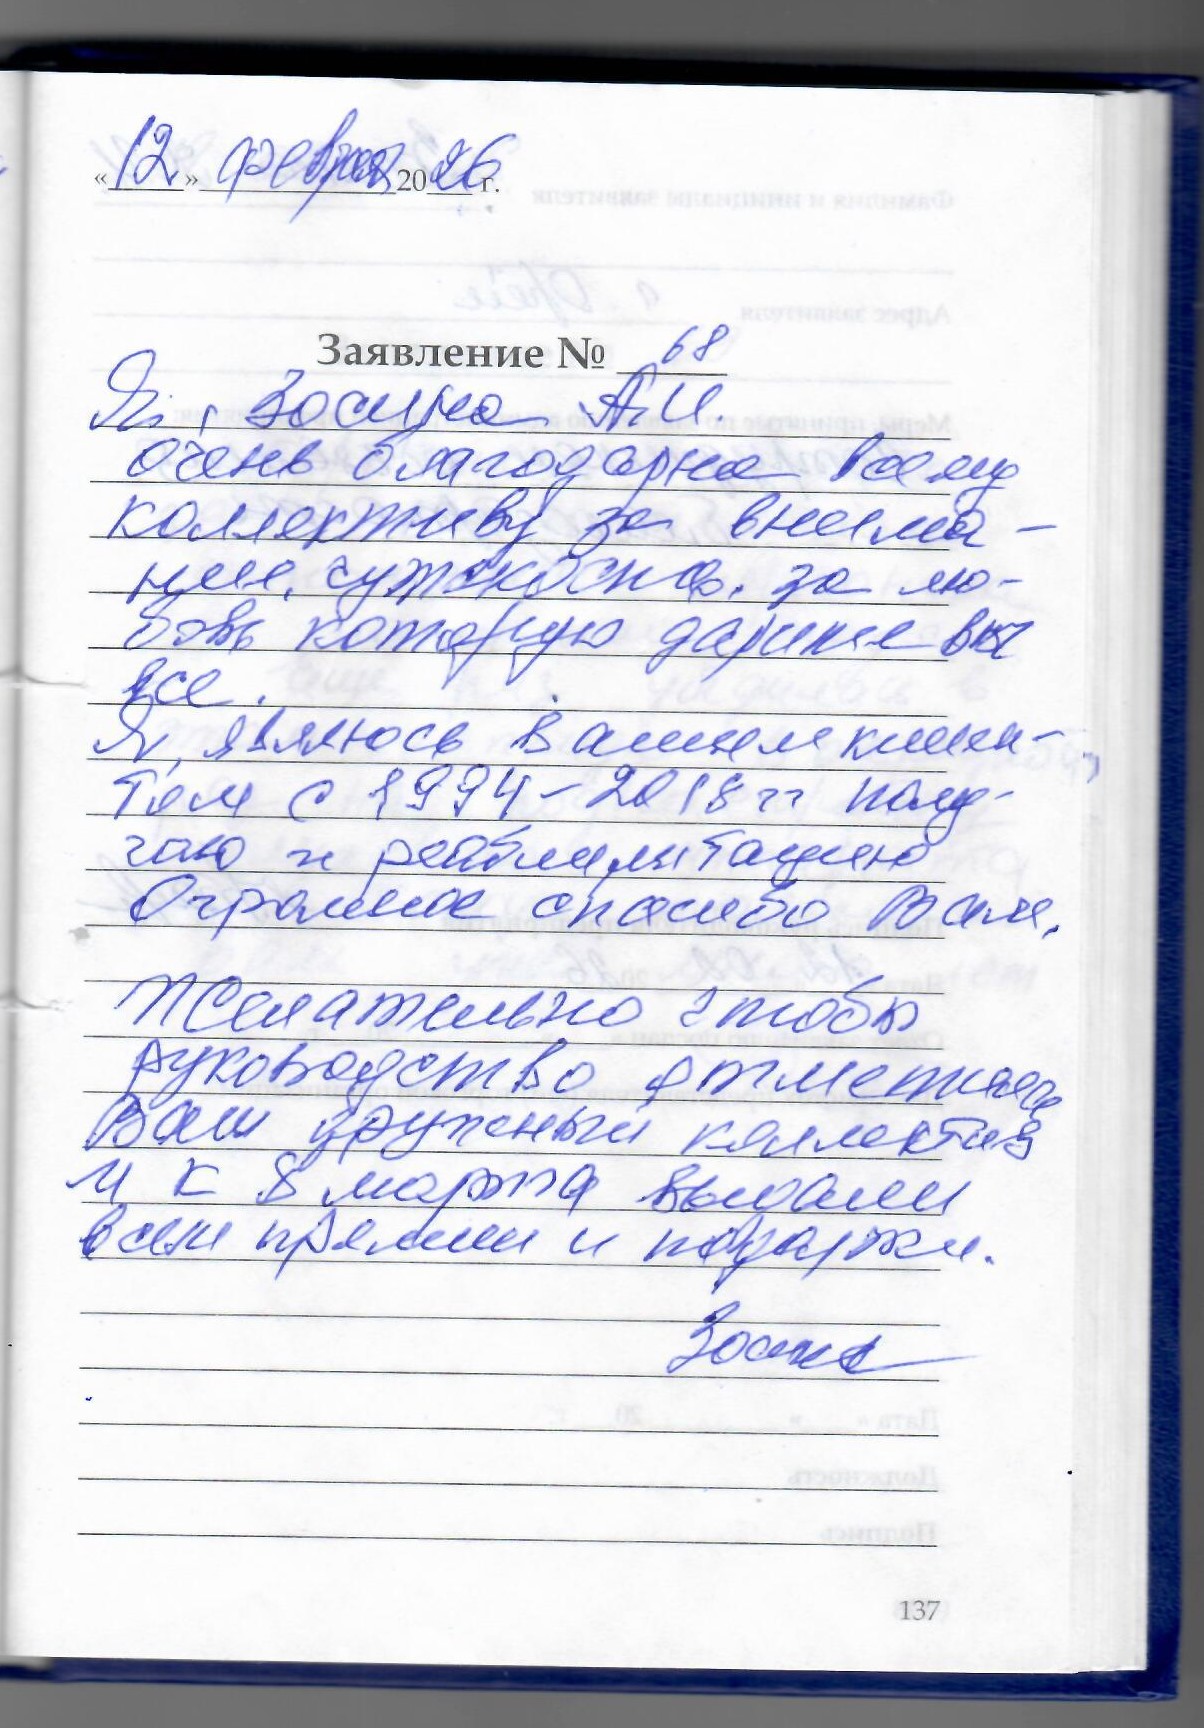 «12» февраля 2026 г.
Заявление № 68
Я, Зосина А.И.
очень благодарна всему
коллективу за внима-
ние, за лю-
бовь которую дарите вы
все.
Я, являюсь Вашим клиен-
том с 1994-2018 гг полу-
чаю и реабилитацию
Огромное спасибо Вам.
Желательно чтобы
руководство отметило
Ваш дружный коллектив
и к 8 марта
всем премии и подарки.
137